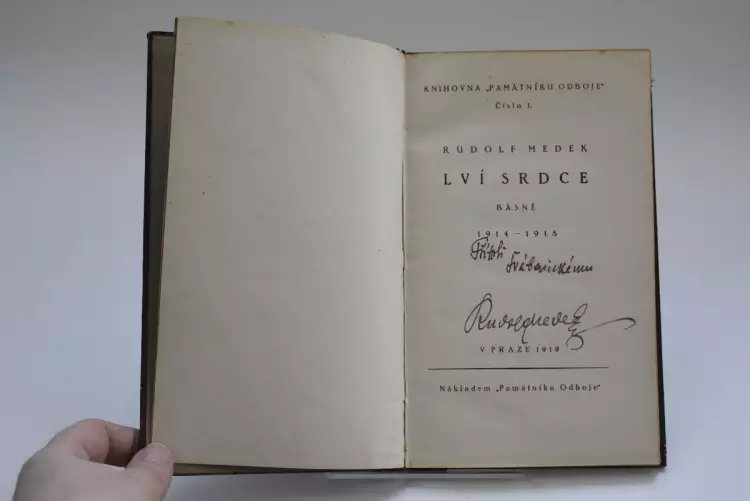 KNIHOVNA „PAMÁTNÍKU ODBOJE“
Číslo 1.
RUDOLF MEDEK
LVÍ SRDCE
BÁSNĚ
1914–1918
Příteli
Švábenickému
Rudolf Medek
V PRAZE 1919
Nákladem „Památníku Odboje“